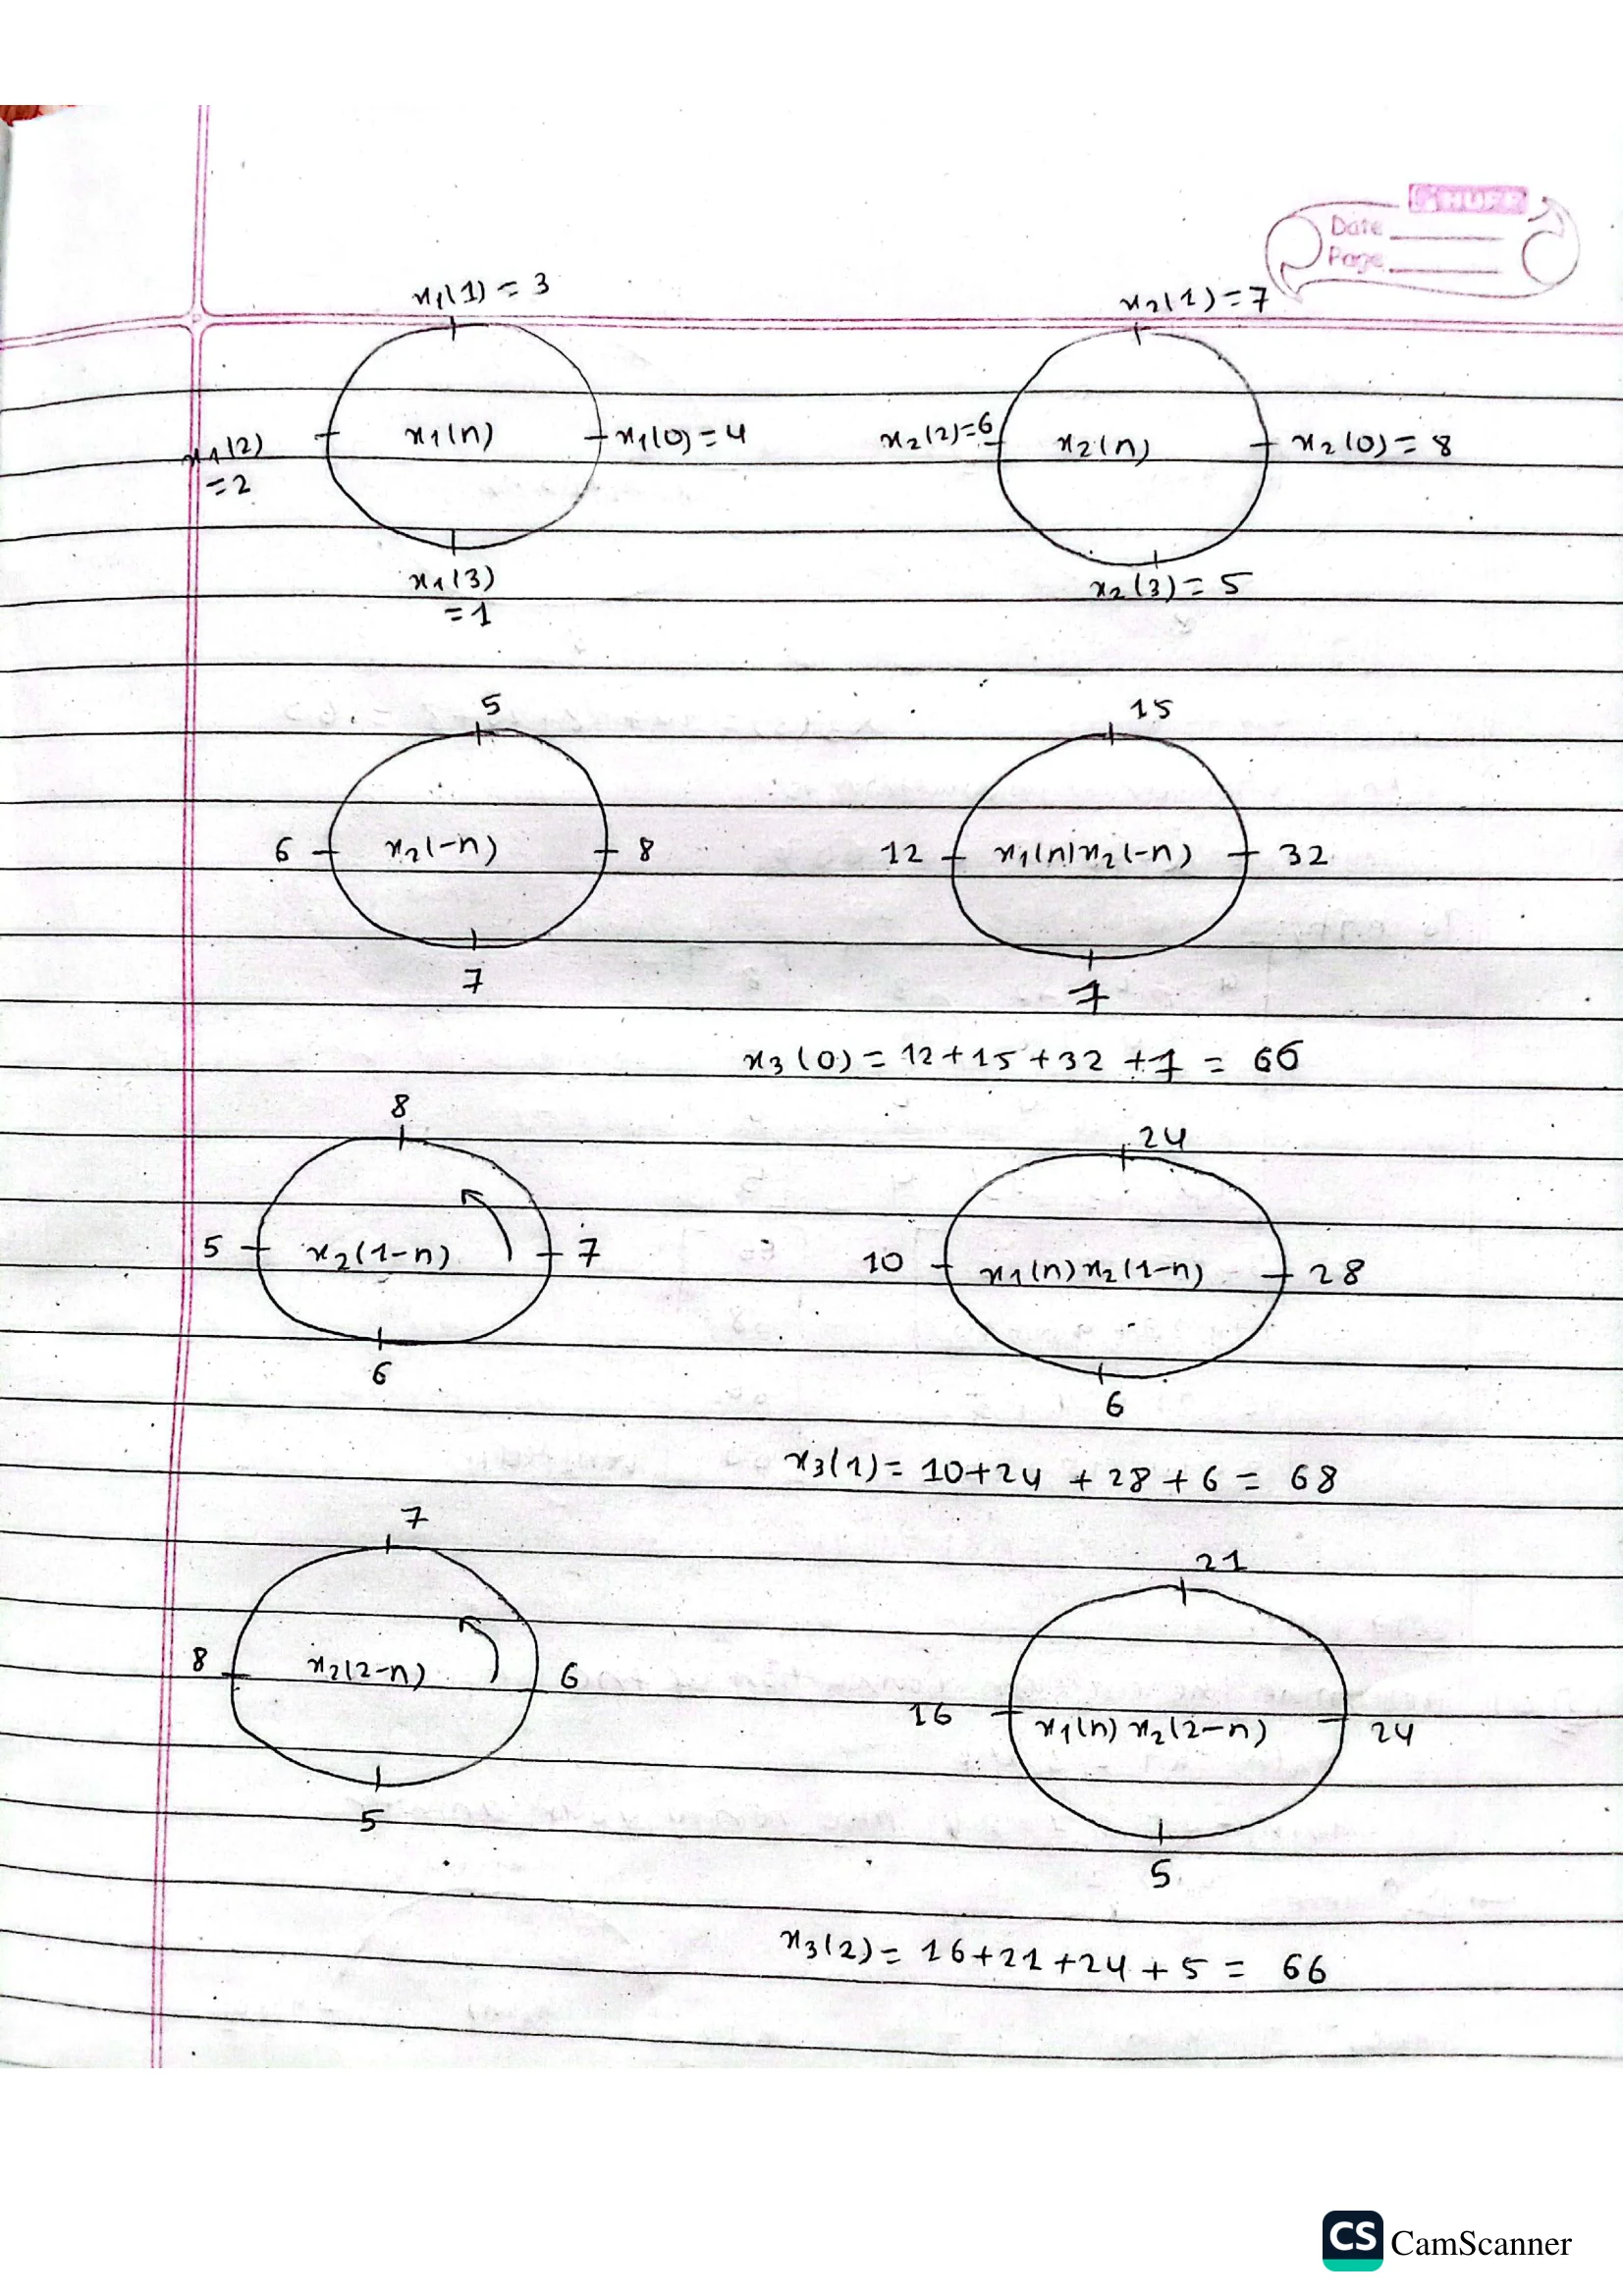 Date
Page
x₁(1) = 3
x₂(1) = 7
x₁(n)
x₁(0) = 4
x₁(2)
= 2
x₁(3)
= 1
x₂(2)=6
x₂(n)
x₂(0) = 8
x₂(3) = 5
5
6
x₂(-n)
8
7
15
12
x₁(n)x₂(-n)
32
7
x₃(0) = 12+15+32+7 = 66
8
5
x₂(1-n)
7
6
24
10
x₁(n)x₂(1-n)
28
6
x₃(1) = 10+24+28+6 = 68
7
8
x₂(2-n)
6
5
21
16
x₁(n) x₂(2-n)
24
5
x₃(2) = 16+21+24+5 = 66
CS CamScanner